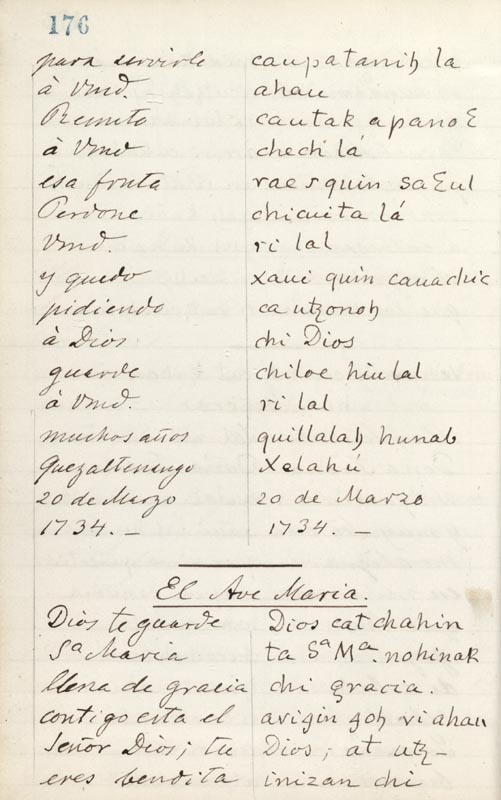 176
para servirle caupatanih la
à Vmd. ahau
Remito cautak apanoɛ
à Vmd chech lá
esa fruta rae rquin saɛul
Perdone chicuita lá
Vmd. ri lal
y quedo xaui quin cauachic
pidiendo ca utzonoh
à Dios chi Dios
guarde chiloe hiu lal
à Vmd. ri lal
muchos años quillalah hunab
Quezaltenengo Xelahú
20 de Marzo 20 de Marzo
1734. — 1734. —
El Ave Maria.
Dios te guarde Dios cat chahin
Sª Maria ta Sª Mª. nohinak
llena de gracia chi gracia.
contigo esta el avigin goh ri ahau
Señor Dios; tu Dios; at utz-
eres bendita inizan chi